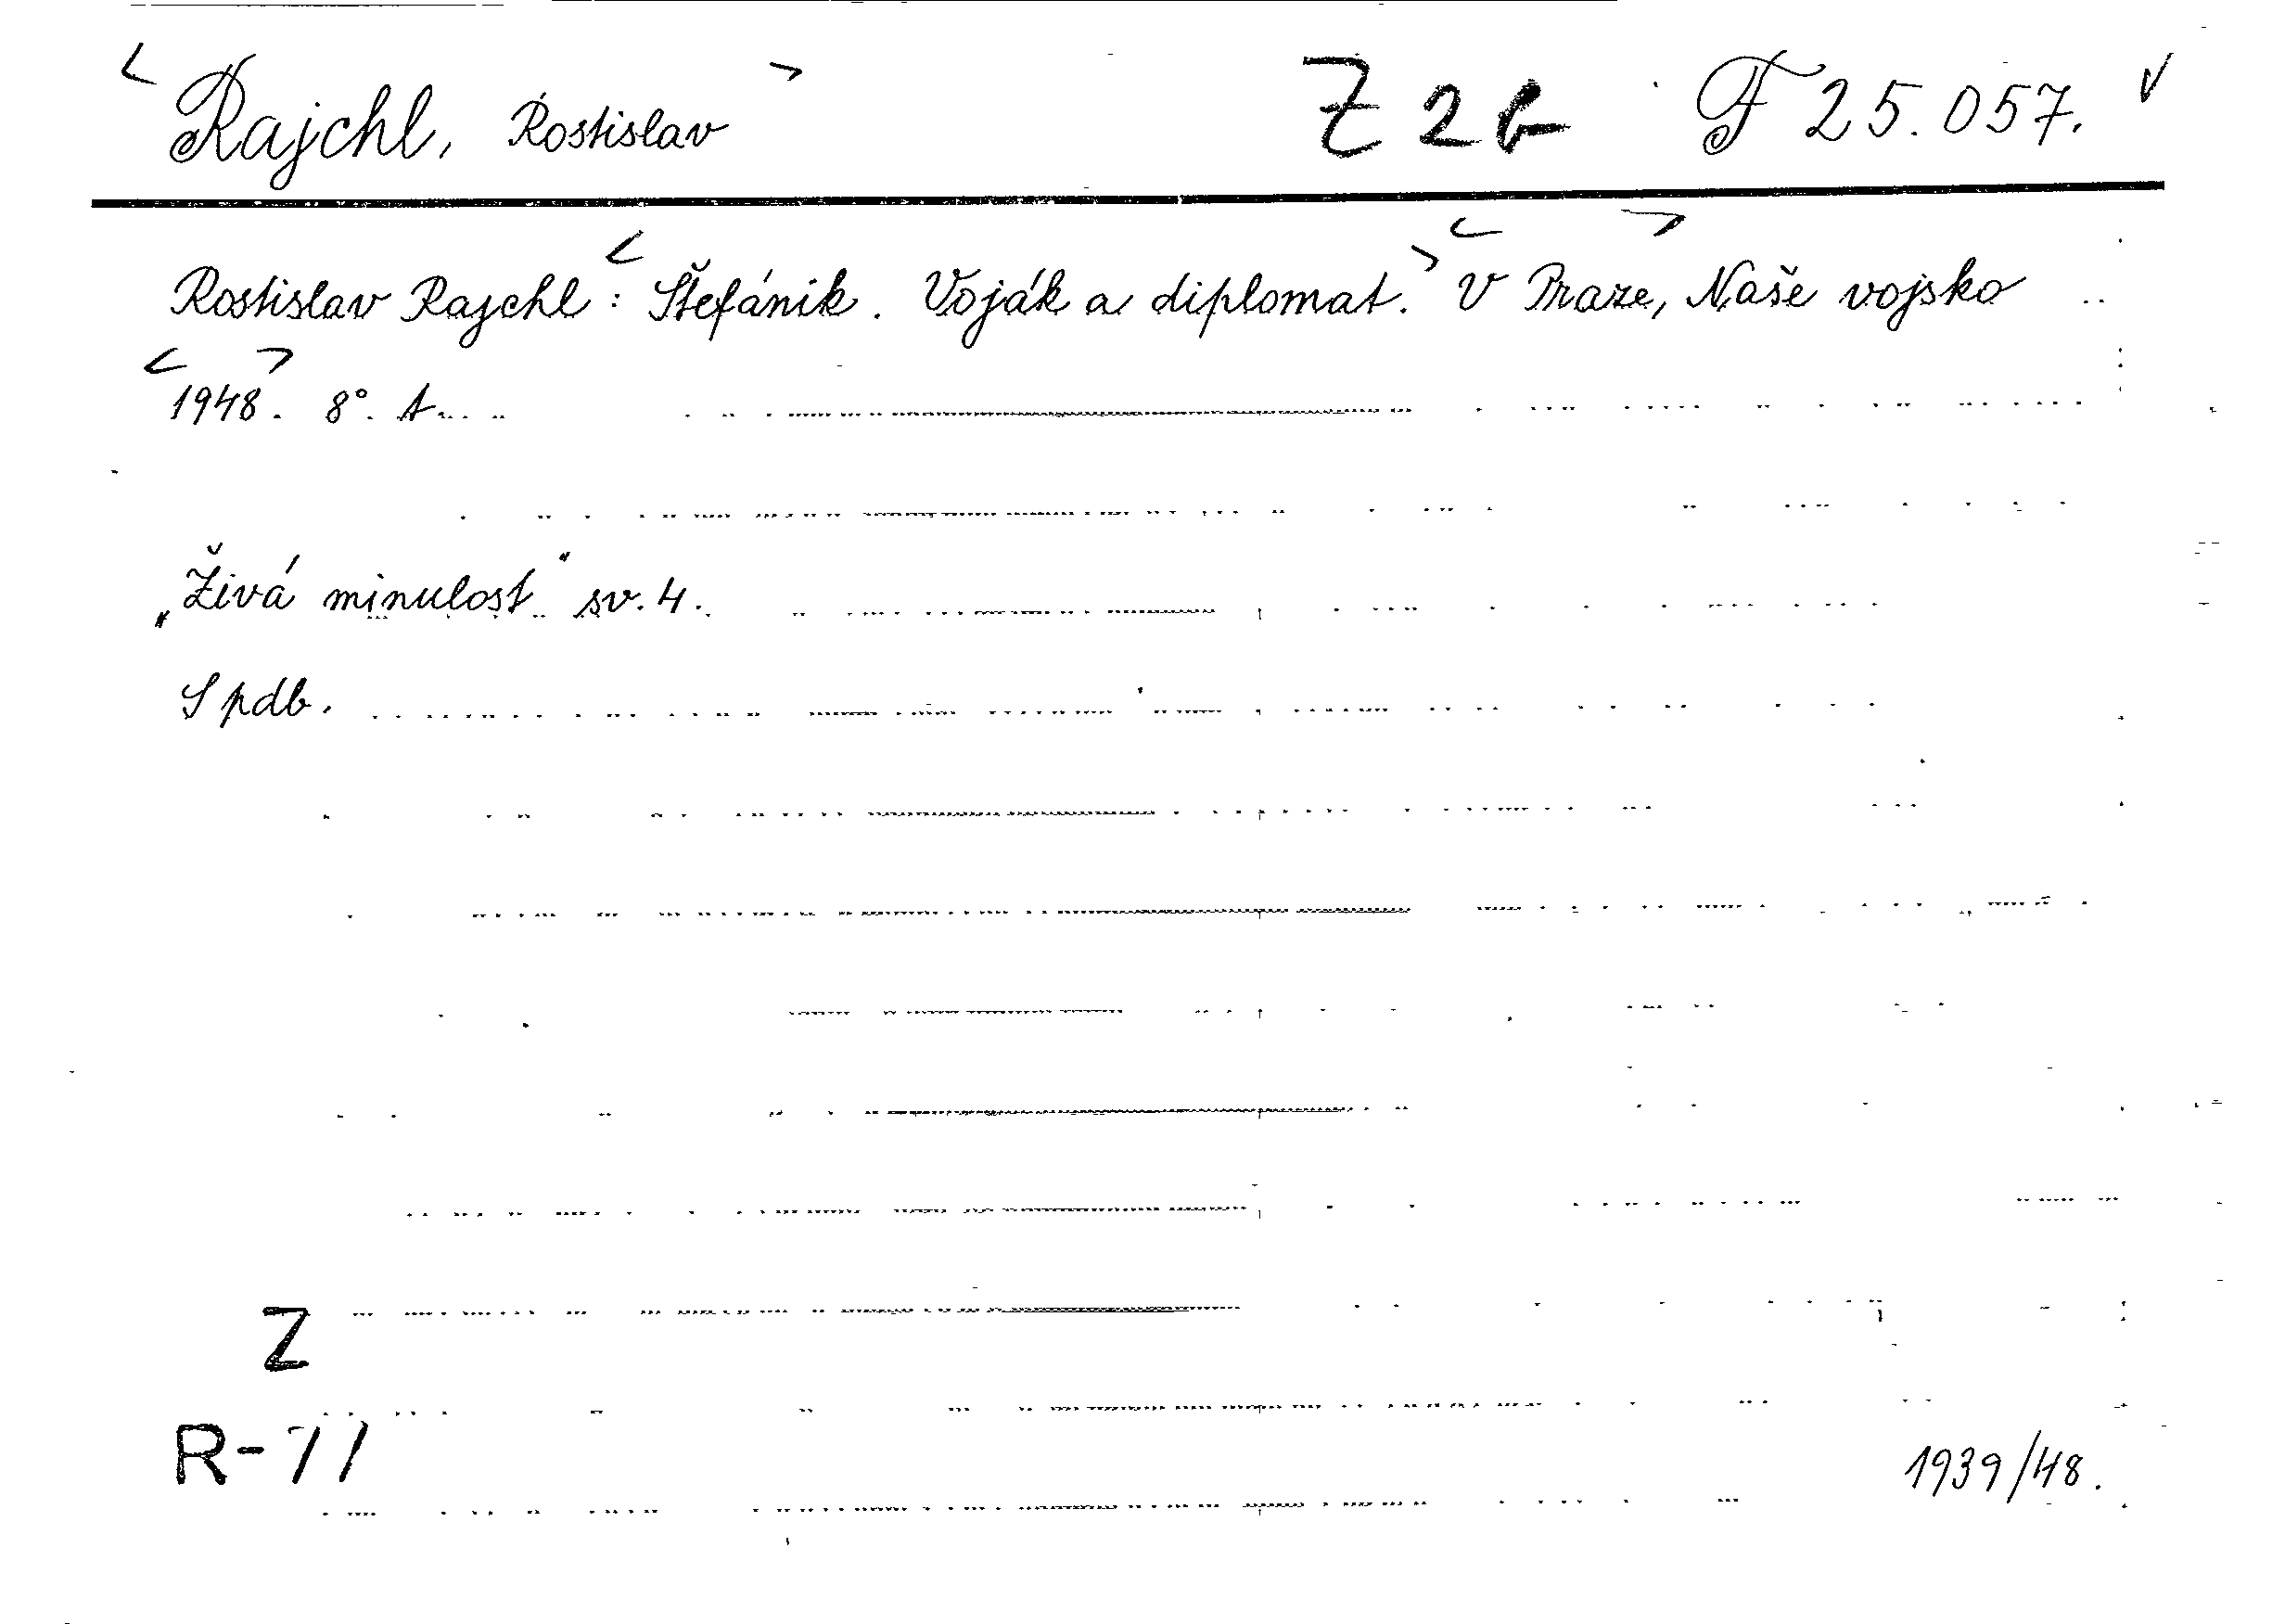 < Rajchl, Rostislav > Z 2b F 25.057. √
Rostislav Rajchl: < Štefánik. Voják a diplomat. > < V Praze, > Naše vojsko
< 1948 >. 8°.
„Živá minulost" sv. 4.
S pdb.
Z
R-71
1939/48.